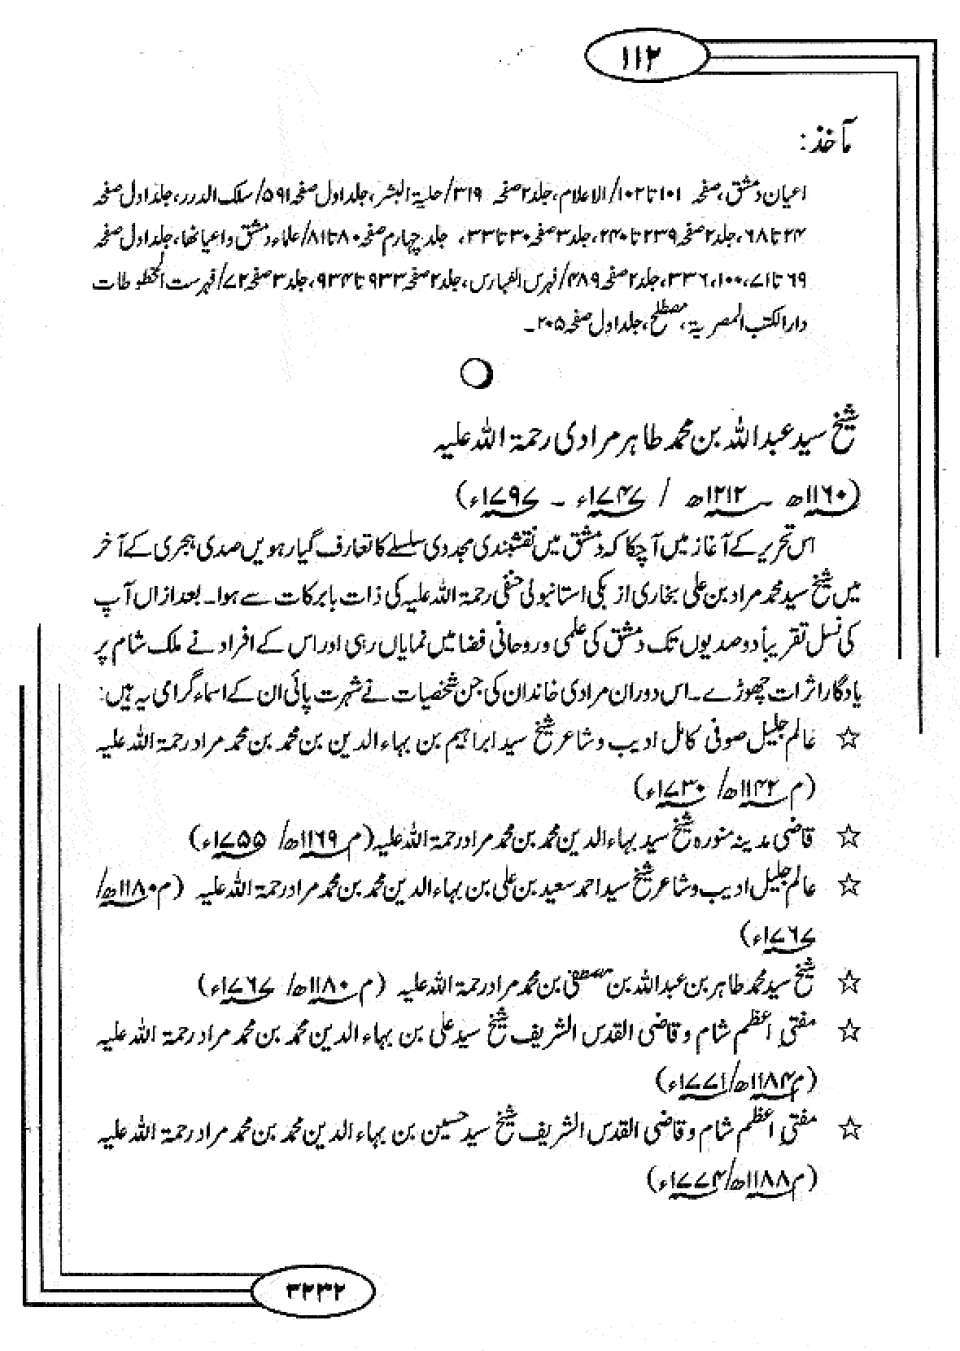 ۱۱۲
مآخذ:
اعیان دمشق، صفحہ ۱۰۱ تا ۱۰۲/ الاعلام، جلد ۲ صفحہ ۳۱۹/ حلیۃ البشر، جلد اول صفحہ ۵۹۱/ سلک الدرر، جلد اول صفحہ
۲۴ تا ۶۸، جلد ۲ صفحہ ۲۳۹ تا ۲۴۰، جلد ۳ صفحہ ۳۰ تا ۳۳، جلد چہارم صفحہ ۸۰ تا ۸۱/ علماء دمشق واعیانھا، جلد اول صفحہ
۶۹ تا ۷۱، ۱۰۰، ۳۳۶، جلد ۲ صفحہ ۴۸۹/ فہرس الفہارس، جلد ۲ صفحہ ۹۳۳ تا ۹۳۴، جلد ۳ صفحہ ۷۲/ فہرست المخطوطات
دار الکتب المصریۃ، مصطلح، جلد اول صفحہ ۲۰۵۔
شیخ سید عبد اللہ بن محمد طاہر مرادی رحمۃ اللہ علیہ
(۱۱۶۰ھ ــ ۱۲۱۲ھ / ۱۷۴۷ء ــ ۱۷۹۷ء)
اس تحریر کے آغاز میں آچکا کہ دمشق میں نقشبندی مجددی سلسلے کا تعارف گیارہویں صدی ہجری کے آخر
میں شیخ سید محمد مراد بن علی بخاری ازبکی استانبولی حنفی رحمۃ اللہ علیہ کی ذات بابرکات سے ہوا۔ بعد ازاں آپ
کی نسل تقریباً دو صدیوں تک دمشق کی علمی و روحانی فضا میں نمایاں رہی اور اس کے افراد نے ملک شام پر
یادگار اثرات چھوڑے۔ اس دوران مرادی خاندان کی جن شخصیات نے شہرت پائی ان کے اسماء گرامی یہ ہیں:
☆ عالم جلیل صوفی کامل ادیب و شاعر شیخ سید ابراہیم بن بہاء الدین بن محمد بن محمد مراد رحمۃ اللہ علیہ
(م ۱۱۴۲ھ/ ۱۷۳۰ء)
☆ قاضی مدینہ منورہ شیخ سید بہاء الدین محمد بن محمد مراد رحمۃ اللہ علیہ (م ۱۱۶۹ھ/ ۱۷۵۵ء)
☆ عالم جلیل ادیب و شاعر شیخ سید احمد سعید بن علی بن بہاء الدین محمد بن محمد مراد رحمۃ اللہ علیہ (م ۱۱۸۰ھ/
۱۷۶۷ء)
☆ شیخ سید محمد طاہر بن عبد اللہ بن مصطفیٰ بن محمد مراد رحمۃ اللہ علیہ (م ۱۱۸۰ھ/ ۱۷۶۷ء)
☆ مفتی اعظم شام و قاضی القدس الشریف شیخ سید علی بن بہاء الدین محمد بن محمد مراد رحمۃ اللہ علیہ
(م ۱۱۸۴ھ/ ۱۷۷۱ء)
☆ مفتی اعظم شام و قاضی القدس الشریف شیخ سید حسین بن بہاء الدین محمد بن محمد مراد رحمۃ اللہ علیہ
(م ۱۱۸۸ھ/ ۱۷۷۴ء)
۳۲۳۲